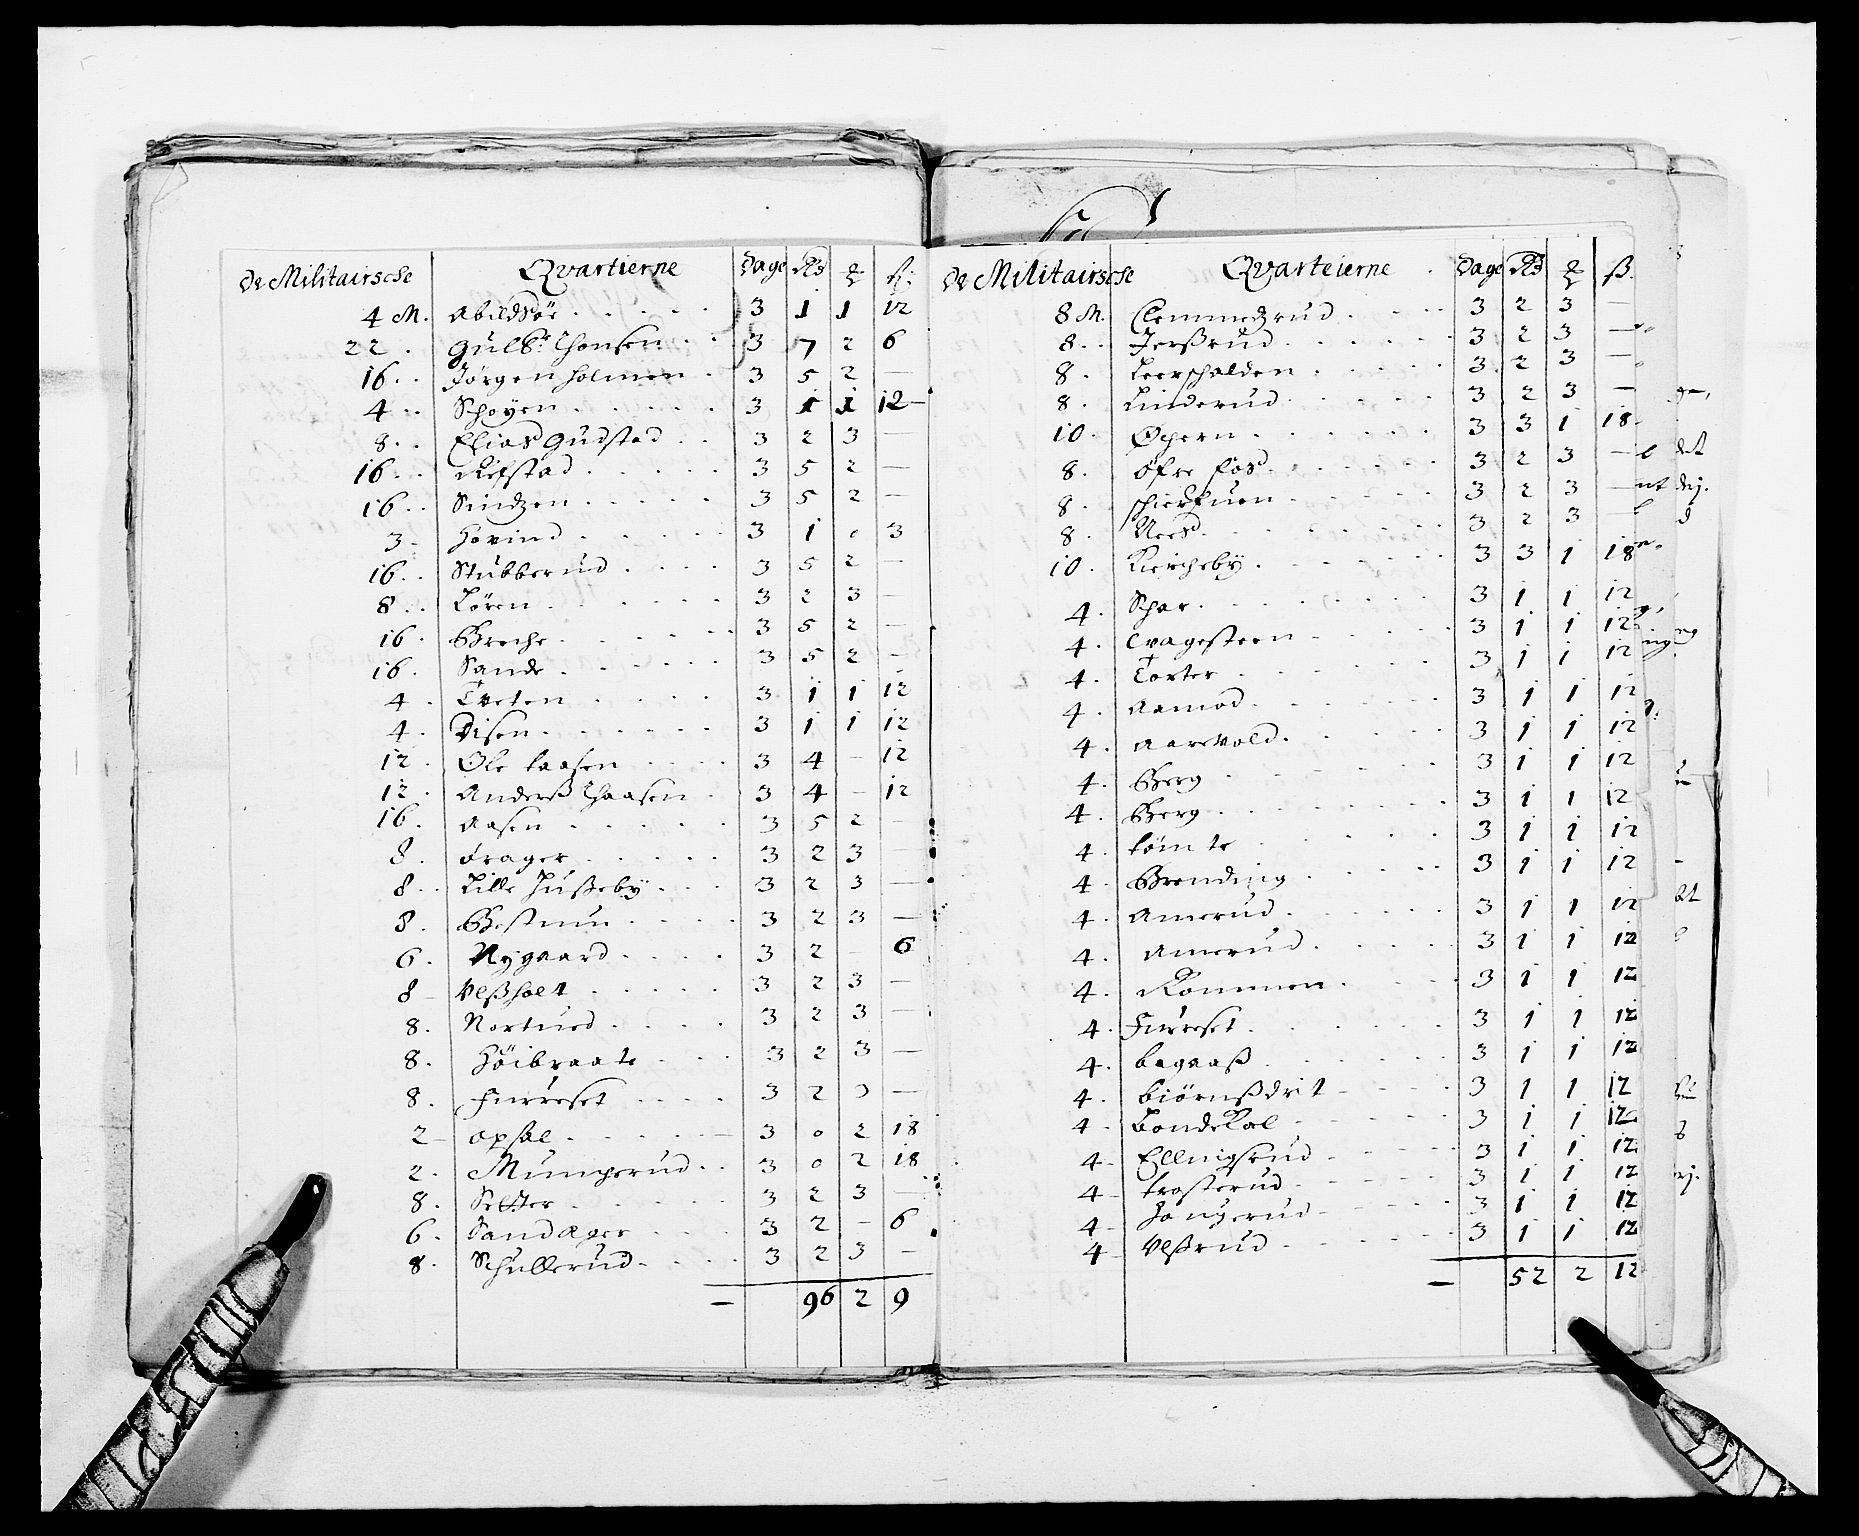 De Militairsche Qvartierne Dage Rd
4 M. Abildsøe 3 1 1 12
22. Gulb: Thonsen 3 7 2 6
16. Jørgen Holmen 3 5 2 —
4. Schøyen 3 1 1 12
8. Elias Gudstad 3 2 3 —
16. Refstad 3 5 2 —
16. Sindzen 3 5 2 —
3 Hovind 3 1 0 3
16. Stubberud 3 5 2 —
8. Løren 3 2 3 —
16. Breche 3 5 2 —
16. Sande 3 5 2 —
4. Tveten 3 1 1 12
4. Disen 3 1 1 12
12. Ole Aasen 3 4 — 12
12. Anderß Thaasen 3 4 — 12
16. Aasen 3 5 2 —
8. Örager 3 2 3 —
8. Lille Hußeby 3 2 3 —
8. Bestum 3 2 3 —
6. Nygaard 3 2 — 6
8 Ulßholt 3 2 3 —
8. Nortued 3 2 3 —
8. Høibraate 3 2 3 —
8. Furreset 3 2 3 —
2 Opsal 3 0 2 18
2. Munperud 3 0 2 18
8. Setter 3 2 3 —
6. Sandager 3 2 — 6
8. Schullerud 3 2 3 —
— 96 2 9
De Militairsche Qvarteierne Dage Rd ß.
8 M. Clemmedzrud 3 2 3 —
8. Jerßrud 3 2 3 —
8. Leerschalden 3 2 3 —
8. Linderud 3 2 3 —
10. Øchern 3 3 1 18
8. Øfre Fos 3 2 3 —
8. 3 2 3 —
8. Nees 3 2 3 —
10. Kiercheby 3 3 1 18
4. Schar 3 1 1 12
4. Tvagesteen 3 1 1 12
4. Torter 3 1 1 12
4. Aamod 3 1 1 12
4. Aarevold 3 1 1 12
4. Berg 3 1 1 12
4. Berg 3 1 1 12
4. Tømte 3 1 1 12
4. Brending 3 1 1 12
4. Amerud 3 1 1 12
4. Amerud 3 1 1 12
4. Rommen 3 1 1 12
4. Furreset 3 1 1 12
4. Bagaaß 3 1 1 12
4. Biørnßdrit 3 1 1 12
4. Bondekal 3 1 1 12
4 Ellingsrud 3 1 1 12
4 Trosterud 3 1 1 12
4 Haugerud 3 1 1 12
4 Ulßrud 3 1 1 12
— 52 2 12